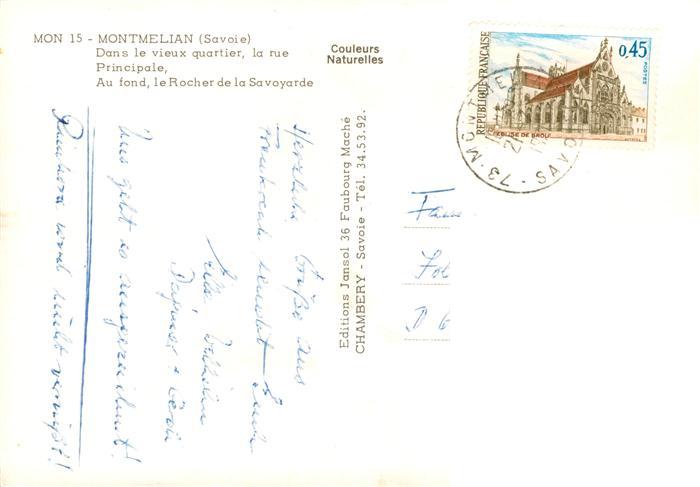 MON 15 - MONTMELIAN (Savoie)
Dans le vieux quartier, la rue
Principale,
Au fond, le Rocher de la Savoyarde
Couleurs
Naturelles
REPUBLIQUE FRANÇAISE
0,45
POSTES
EGLISE DE BROU
73 - MONTME
SAVOIE
Editions Jansol 36 Faubourg Maché
CHAMBERY - Savoie - Tél. 34.53.92.
Herzliche Grüße aus
Frankreich sendet Euch
Wilhelm
Dagmar +
Uns geht es ausgezeichnet!
wird nicht vermißt!
Fam
D 6